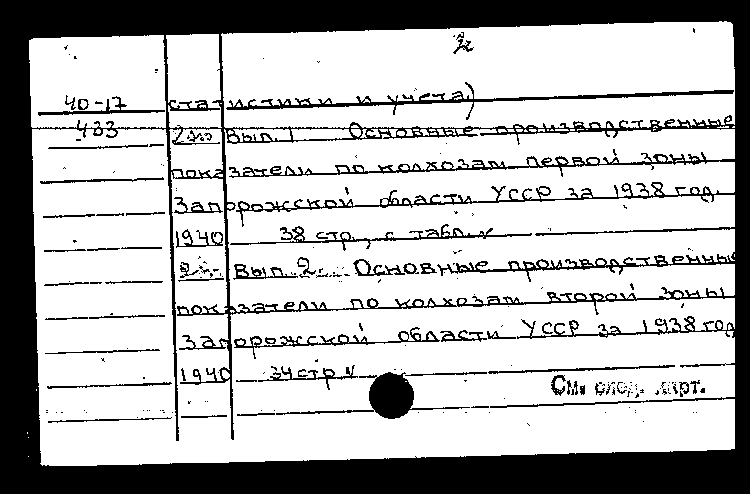 2
40-17 статистики и учета)
433 2экз Вып. 1 Основные производственные
показатели по колхозам первой зоны
Запорожской области УССР за 1938 год.
1940 38 стр., с табл. v
Вып 2. Основные производственные
показатели по колхозам второй зоны
Запорожской области УССР за 1938 год
1940 34 стр v
См. след. карт.